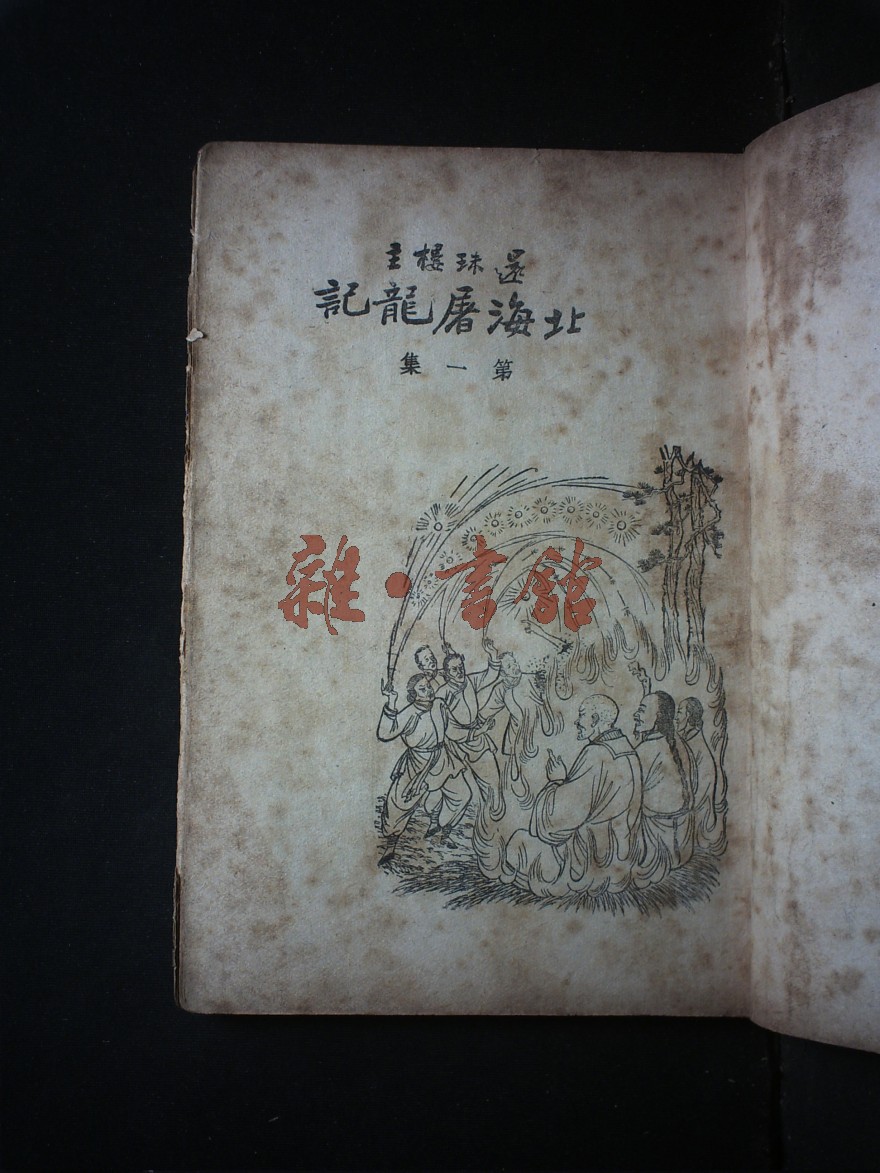 還珠楼主
北海屠龍記
第一集
雜·書館